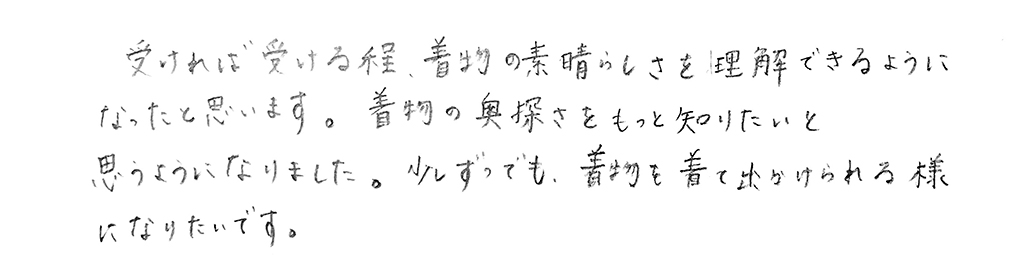 受ければ受ける程、着物の素晴らしさを理解できるように
なったと思います。着物の奥深さをもっと知りたいと
思うようになりました。少しずつでも、着物を着て出かけられる様
になりたいです。